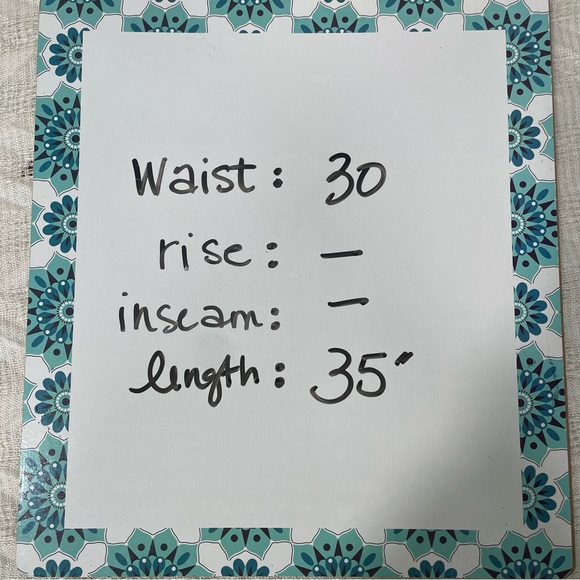 Waist: 30
rise: —
inseam: —
length: 35"